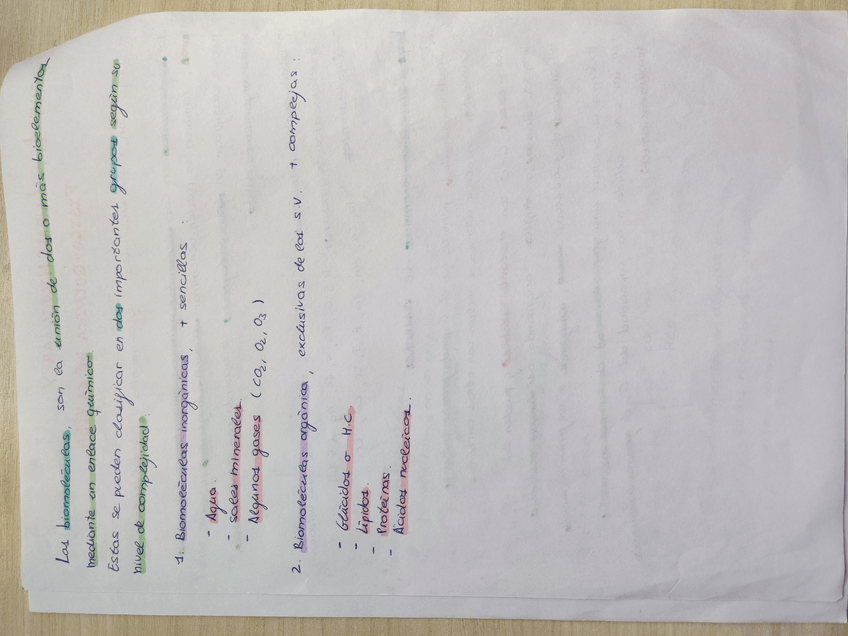 Las biomoléculas, son la unión de dos o más bioelementos
mediante un enlace químico.
Estas se pueden clasificar en dos importantes grupos según su
nivel de complejidad:
1. Biomoléculas inorgánicas, + sencillas :
- Agua.
- Sales minerales.
- Algunos gases (CO2, O2, O3)
2. Biomoléculas orgánica, exclusivas de los s.v. + complejas :
- Glúcidos o H.C.
- Lípidos.
- Proteínas.
- Ácidos nucleicos.